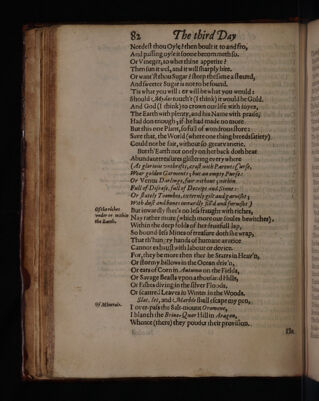 82 The third Day
Needest thou Oyle? then boult it to and fro,
And passing oyle it soone becommeth so.
Or Vineger, to whet thine appetite?
Then sun it wel, and it will sharply bite.
Or want'st thou Sugar? steep the same a stound,
And sweeter Sugar is not to be found.
'Tis what you will: or will be what you would:
Should Midas touch't (I think) it would be Gold.
And God (I think) to crown our life with
The Earth with plenty, and his Name with praise,
Had don enough, if he had made no more
But this one Plant, so full of wondrous store:
Save that, the World (where one thing breeds satiety)
Could not be fair, without so great variety.
But th'Earth not only on her back doth bear
Abundant treasures glistering every where
(As glorious
Wear golden Garments; but an empty Purse:
Or Venus Darlings, fair without; within
Full of Disease, full of Deceipt and Sinne:
Or stately Toombes, externly gilt and garnisht;
With dust and bones inwardly fill'd and furnisht)
Of the riches
under or within
the Earth.
But inwardly shee's no less fraught with riches,
Nay rather more (which more our soules bewitches).
Within the deep folds of her fruitfull lap,
So bound-less Mines of treasure doth she wrap,
That th'hungry hands of humane avarice
Cannot exhaust with labour or device.
For, they be more then ther be Starrs in Heav'n,
Or stormy billows in the Ocean driv'n,
Or ears of Corn in Autumn on the Fields,
Or Savage Beasts upon a thousand Hills,
Or Fishes diving in the silver Floods,
Or scattred Leaves in Winter in the Woods.
Of Minerals.
Slat, Jet, and Marble shall escape my pen,
I over-pass the Salt-mount Oromene,
I blanch the Brine-Quar Hill in Aragon,
Whence (there) they pouder their provision.